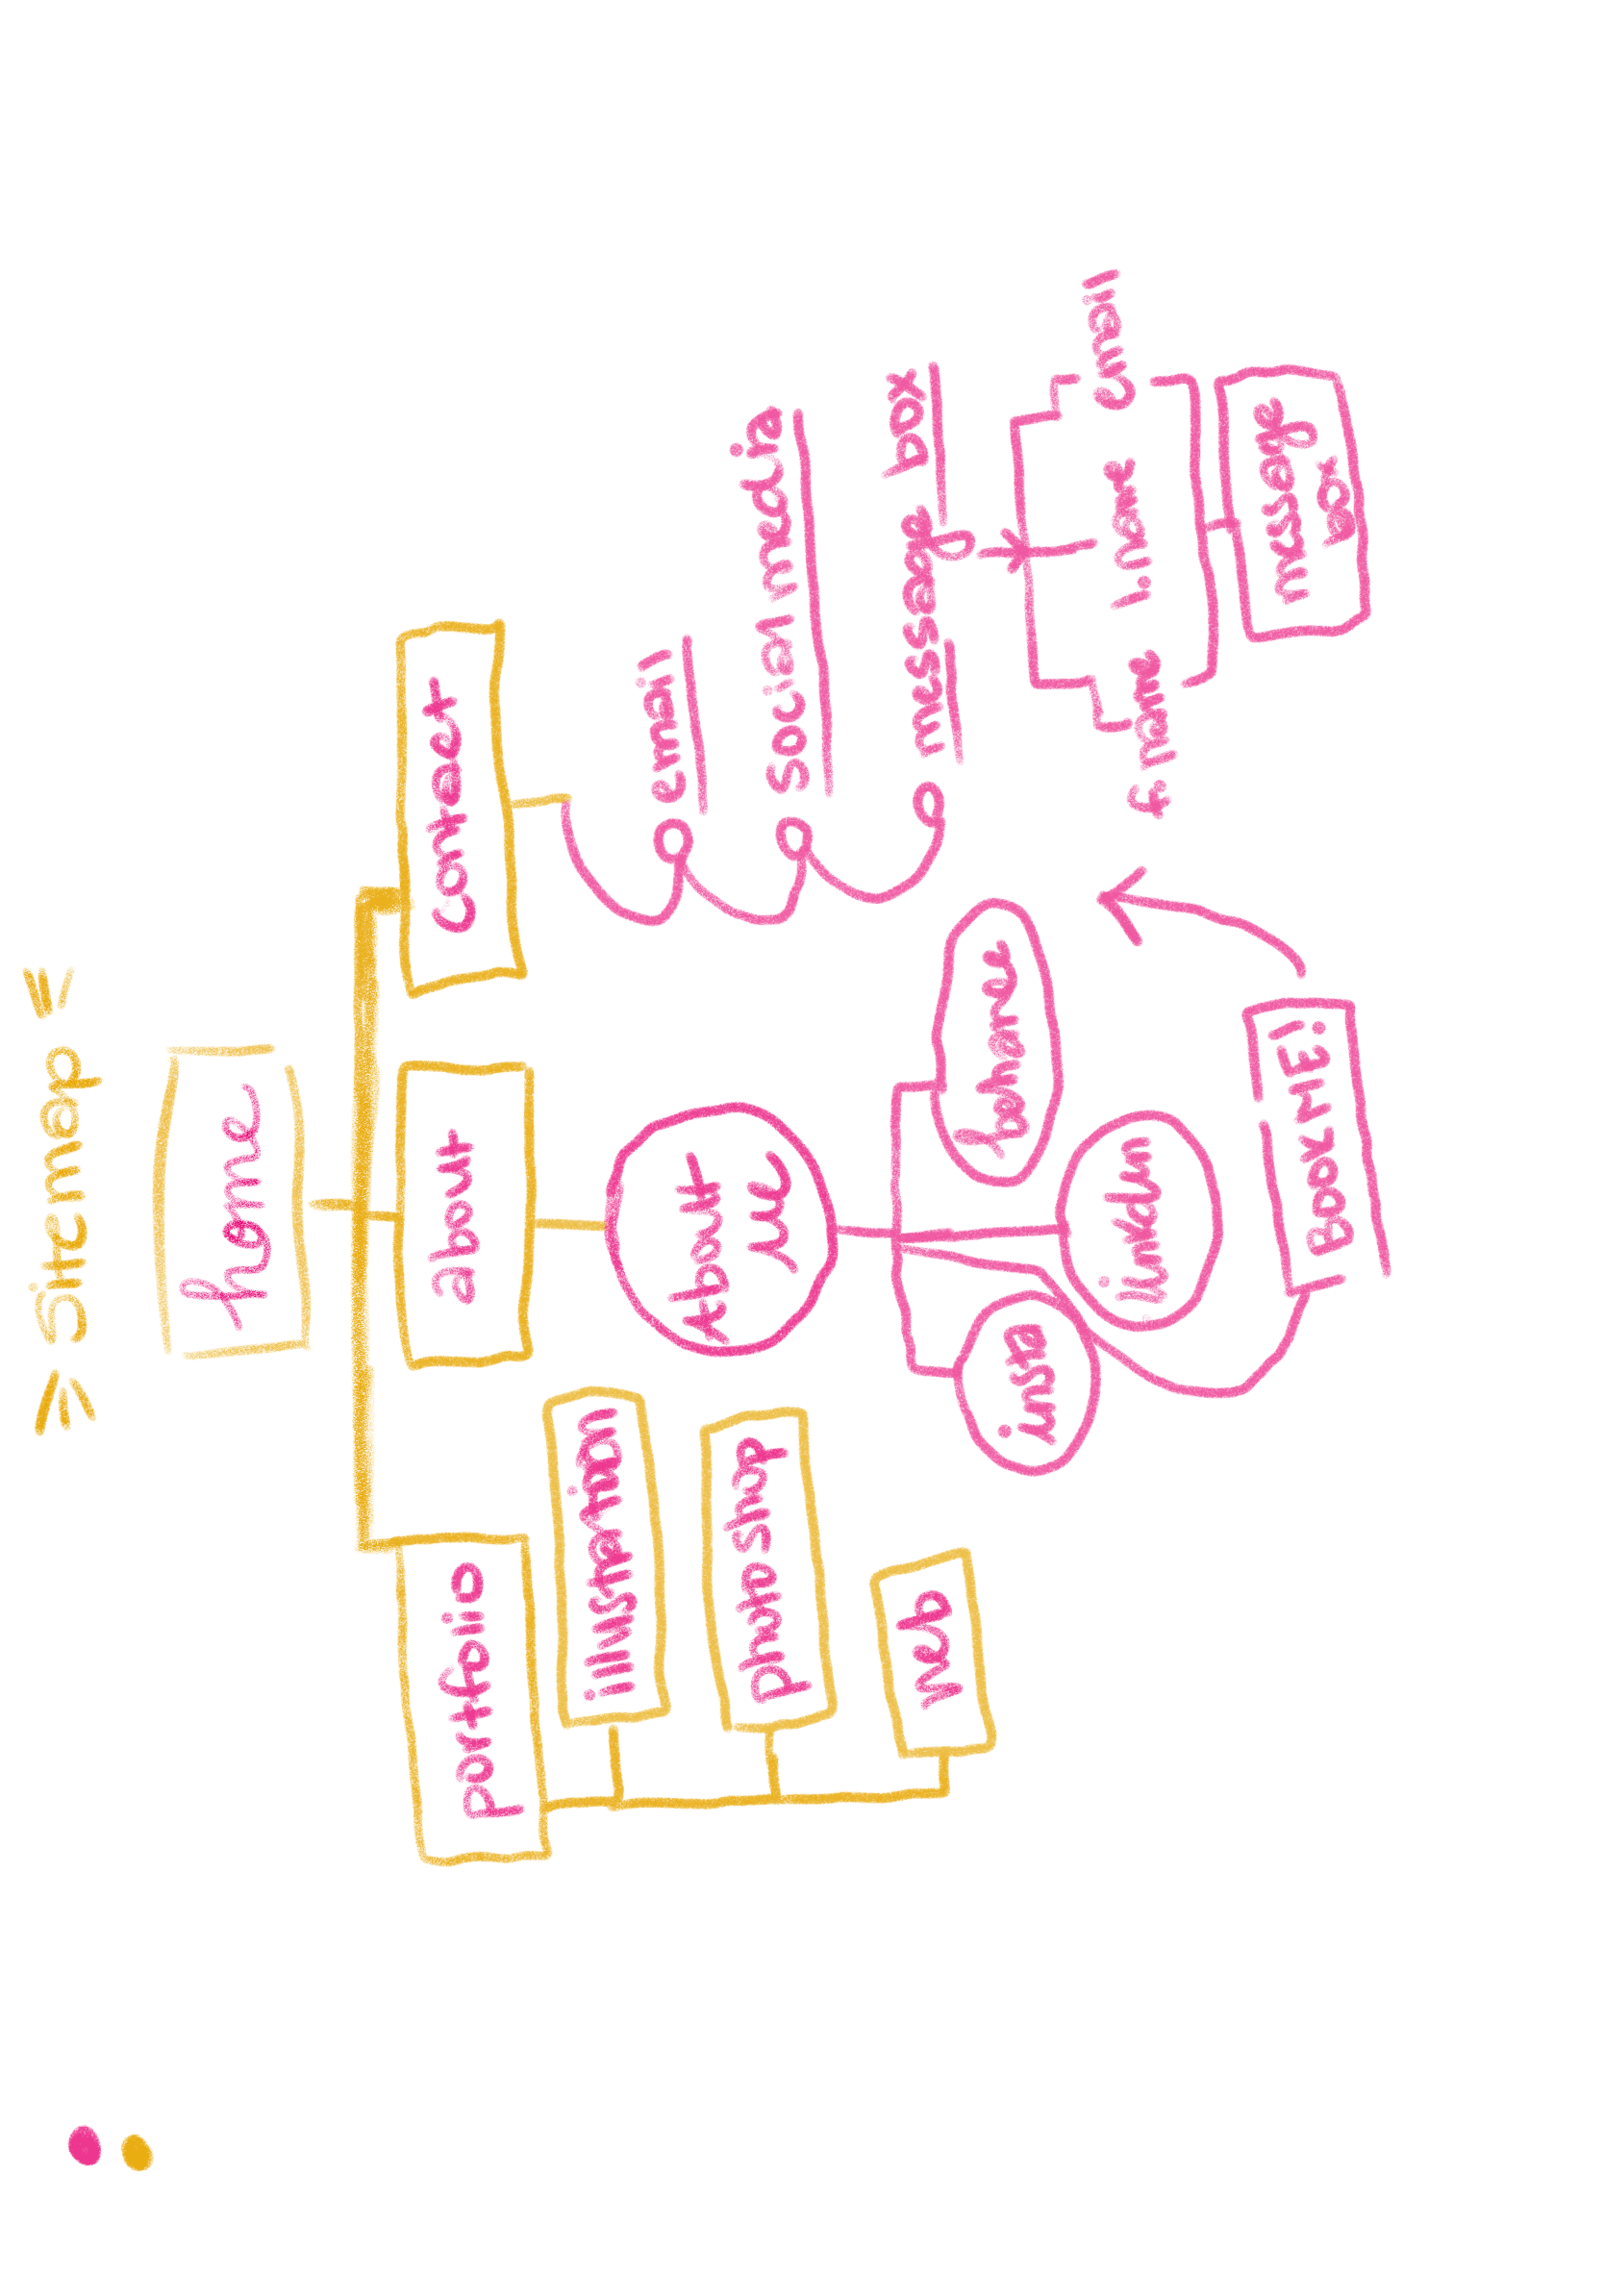 Sitemap
home
portfolio
about
contact
illustration
photoshop
web
About
me
insta
linkdin
behance
BOOK ME!
email
social media
message box
f. name
l. name
email
message
box